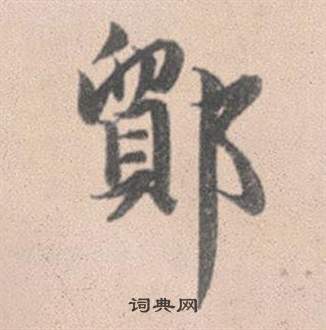 鄮
词典网